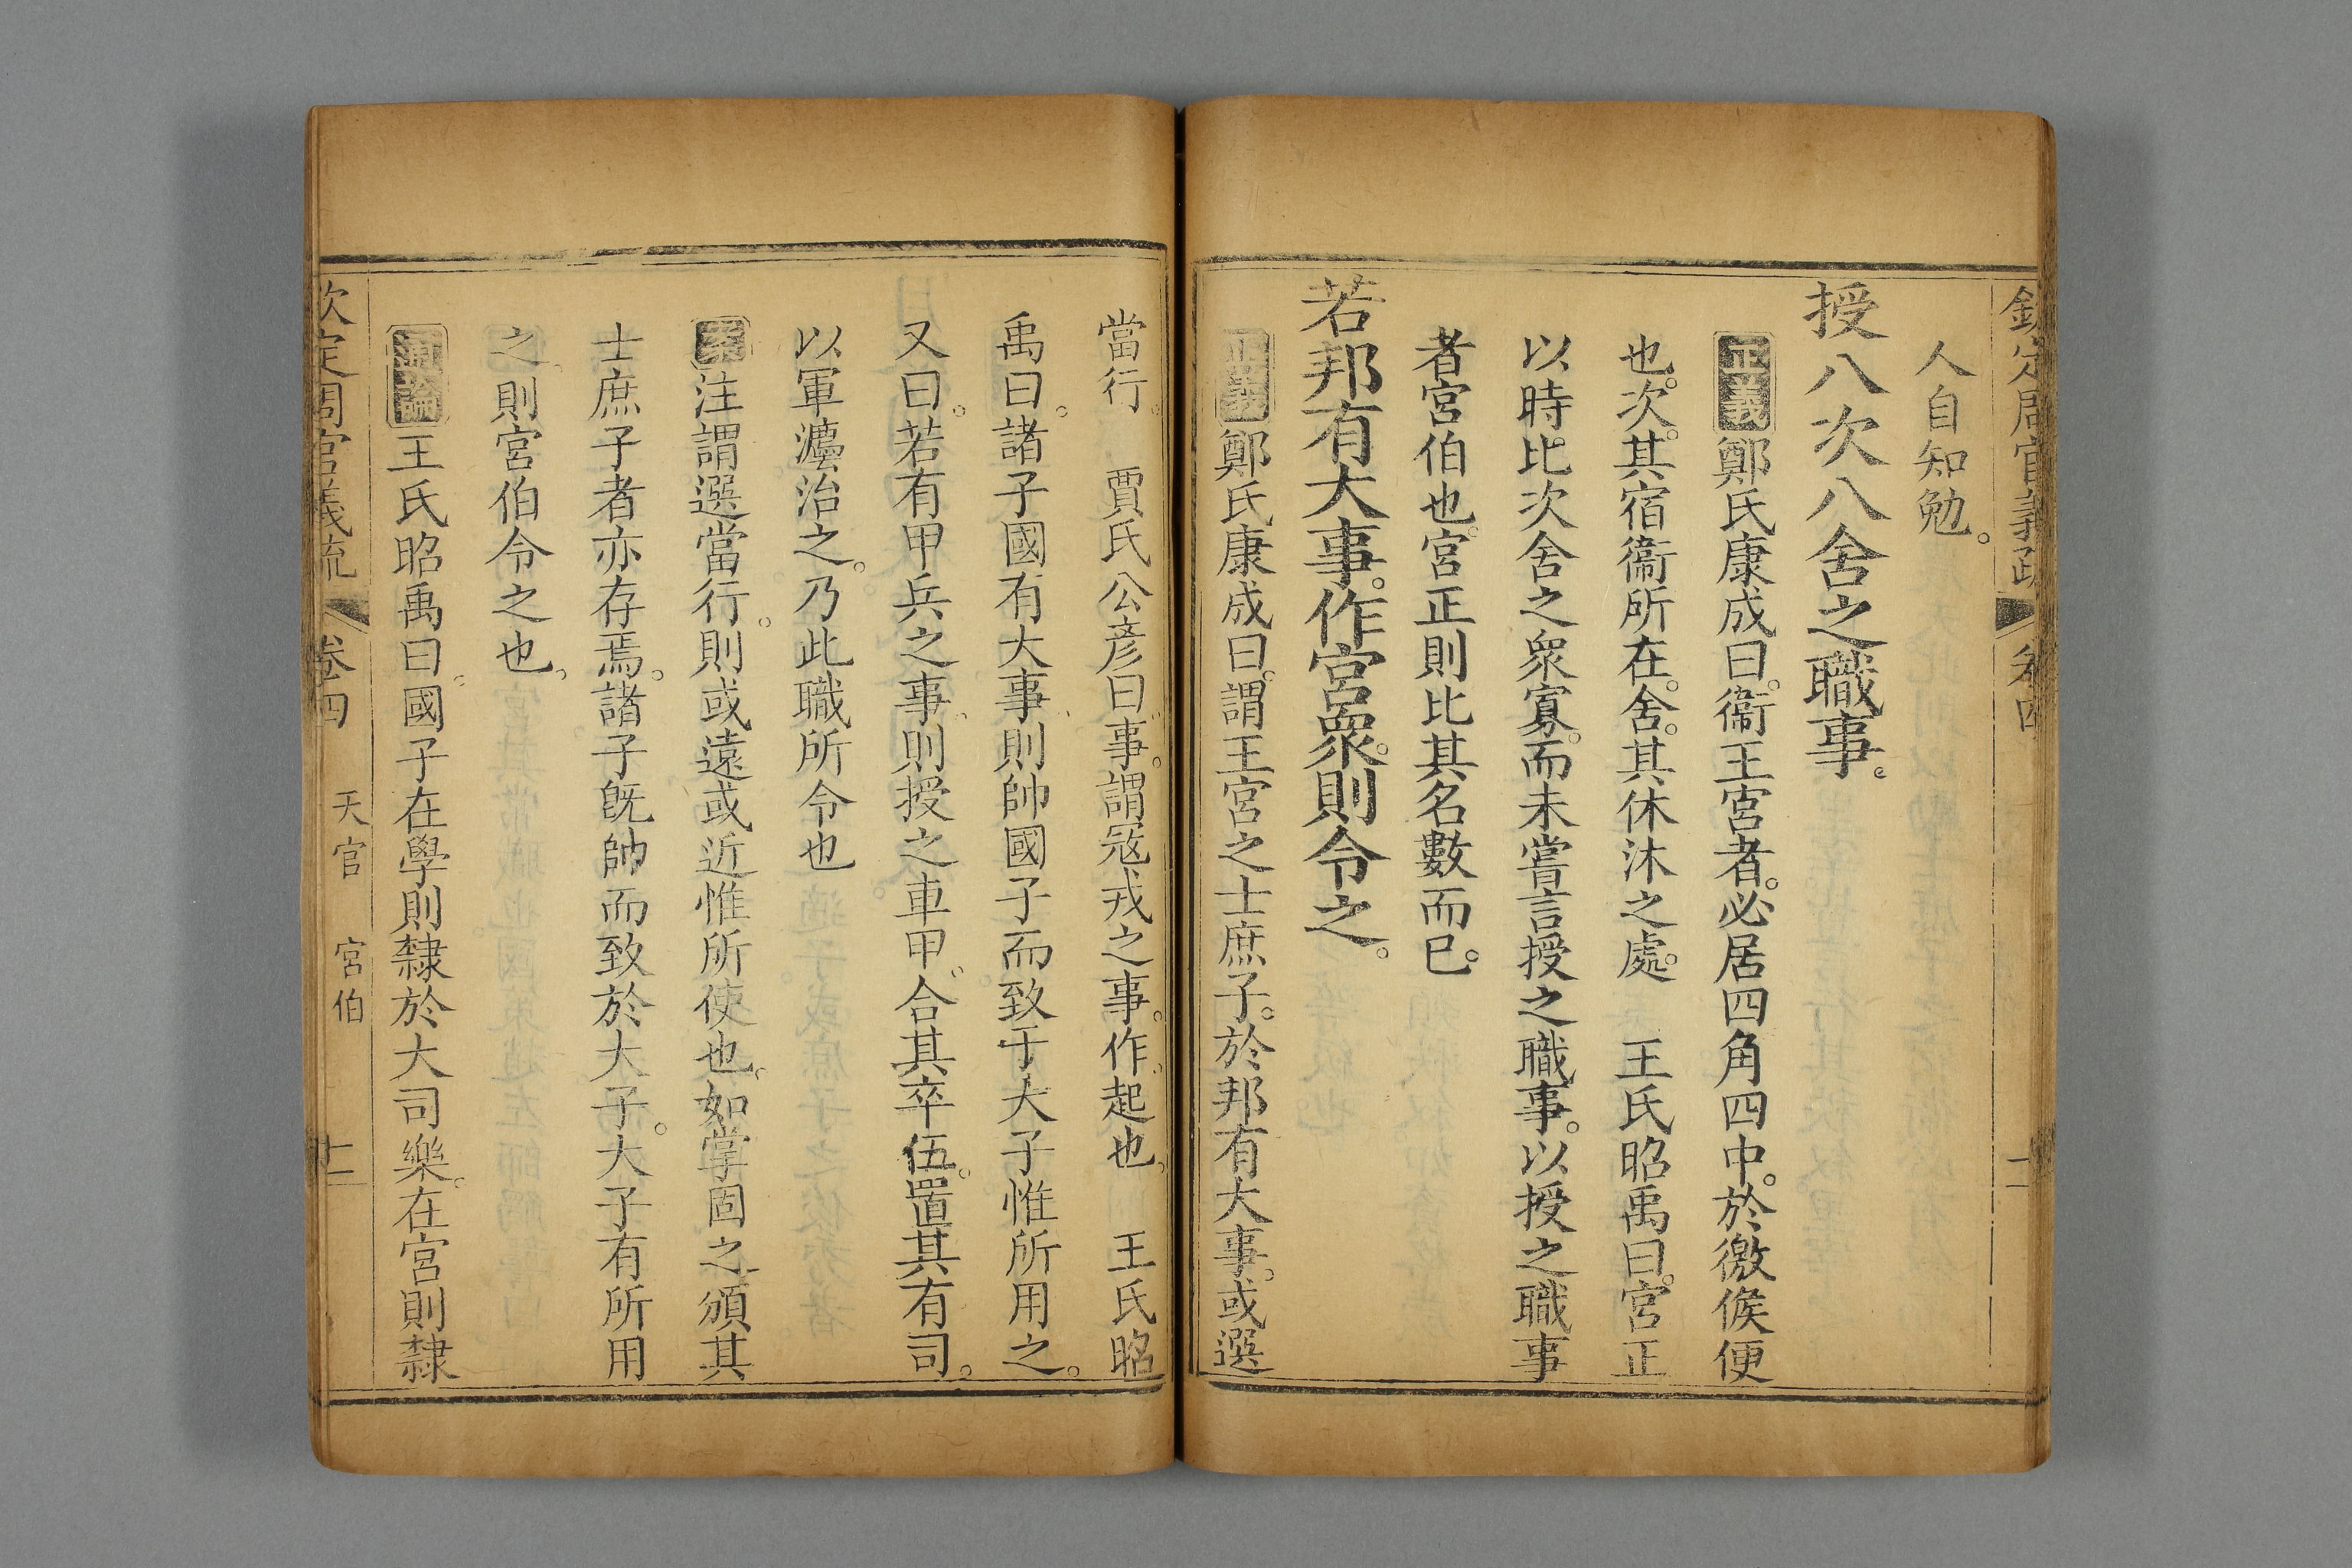 欽定周官義疏 卷四
人自知勉。
授八次八舍之職事。
正義鄭氏康成曰。衞王宮者。必居四角四中。於徼候便
也。次。其宿衞所在。舍。其休沐之處。 王氏昭禹曰。宮正
以時比次舍之衆寡。而未嘗言授之職事。以授之職事
者宮伯也。宮正則比其名數而已。
若邦有大事。作宮衆。則令之。
正義鄭氏康成曰。謂王宮之士庶子。於邦有大事。或選
當行。 賈氏公彥曰。事。謂冦戎之事。作。起也。 王氏昭
禹曰。諸子國有大事。則帥國子而致于大子惟所用之。
又曰。若有甲兵之事。則授之車甲。合其卒伍。置其有司。
以軍灋治之。乃此職所令也
案注謂選當行。則或遠或近惟所使也。如掌固之頒其
士庶子者亦存焉。諸子旣帥而致於大子。大子有所用
之。則宮伯令之也。
通論王氏昭禹曰。國子在學則隸於大司樂。在宮則隸
欽定周官義疏 卷四 天官 宮伯 十二